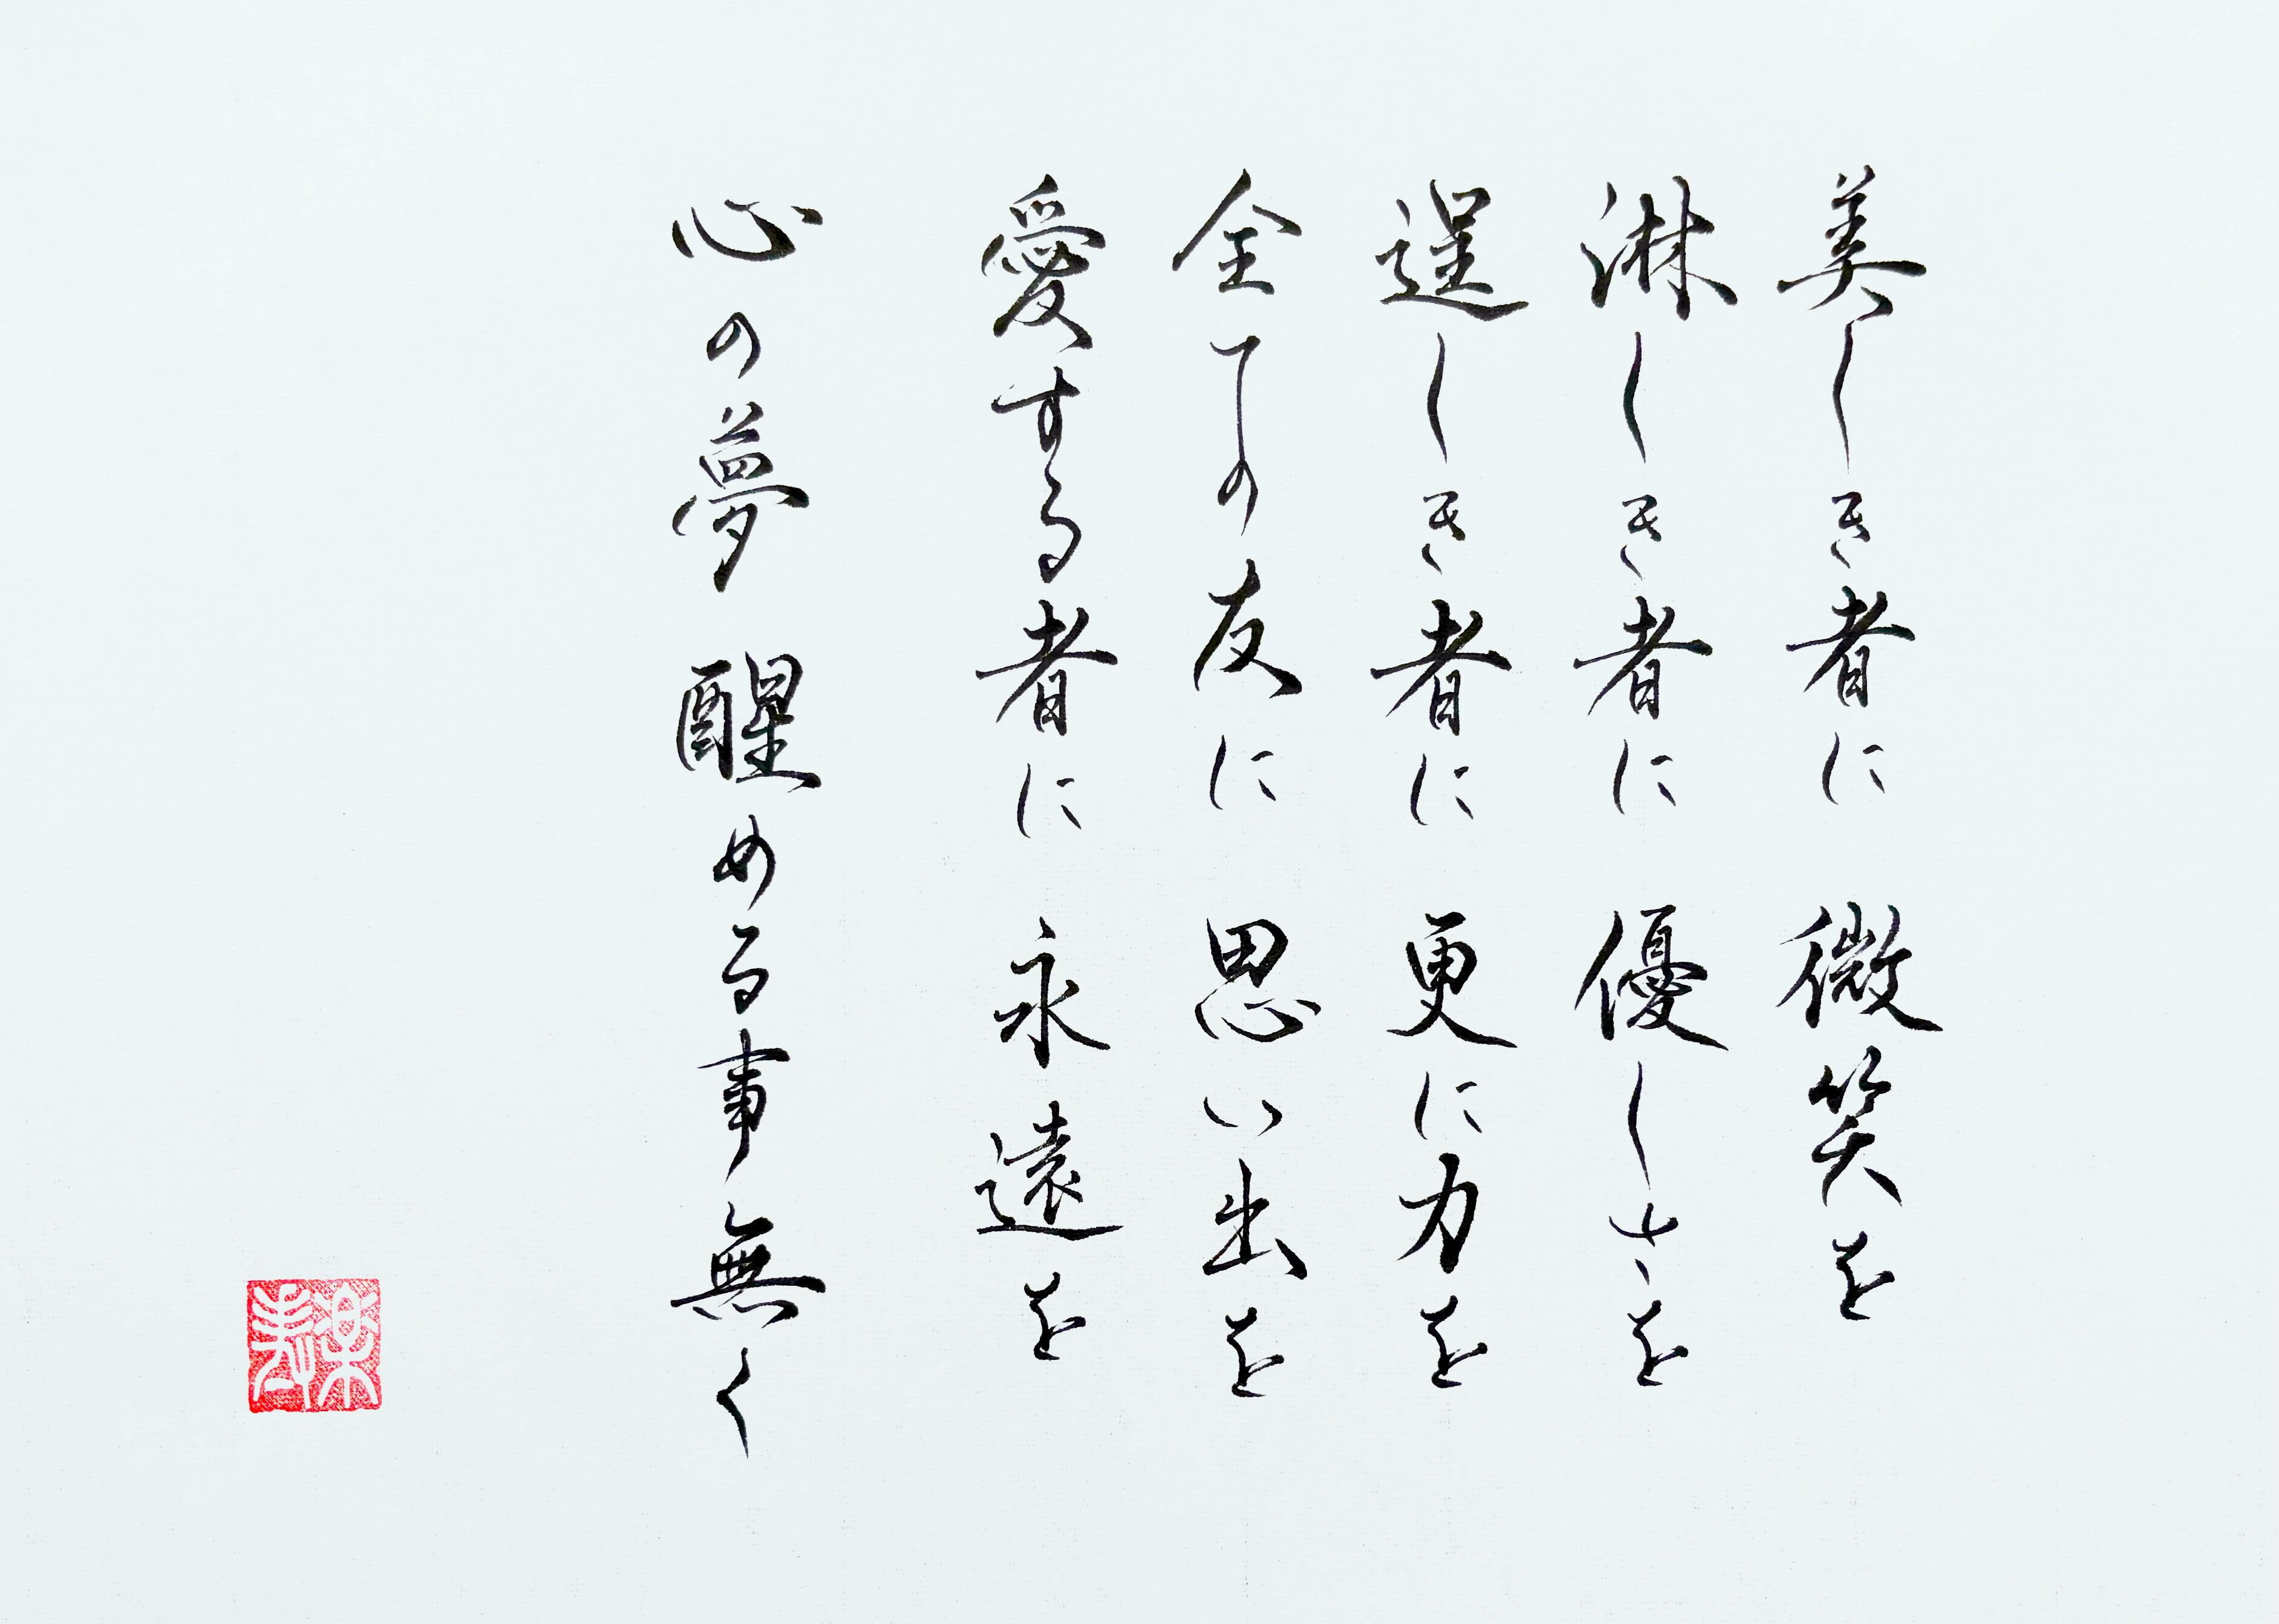 美しき者に 微笑を
淋しき者に 優しさを
逞しき者に 更に力を
全ての友に 思い出を
愛する者に 永遠を
心の夢 醒める事無く